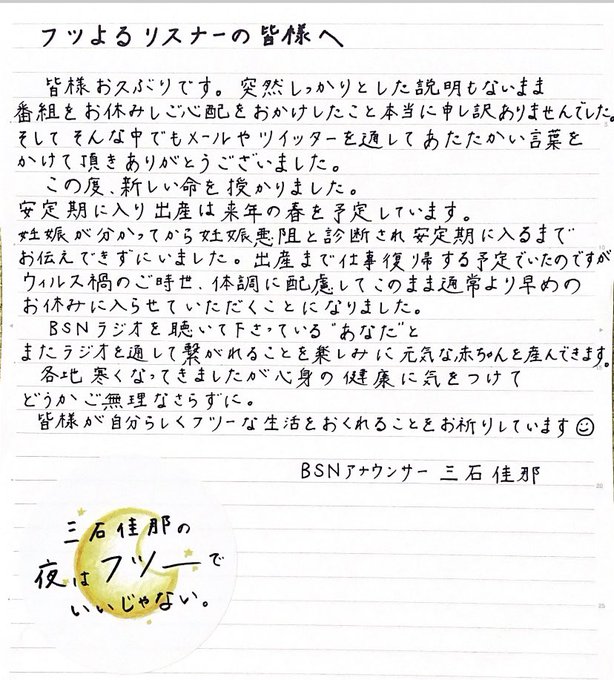 フツよるリスナーの皆様へ
皆様お久ぶりです。突然しっかりとした説明もないまま
番組をお休みしご心配をおかけしたこと本当に申し訳ありませんでした。
そしてそんな中でもメールやツイッターを通してあたたかい言葉を
かけて頂きありがとうございました。
この度、新しい命を授かりました。
安定期に入り出産は来年の春を予定しています。
妊娠が分かってから妊娠悪阻と診断され安定期に入るまで
お伝えできずにいました。出産まで仕事復帰する予定でいたのですが
ウィルス禍のご時世、体調に配慮してこのまま通常より早めの
お休みに入らせていただくことになりました。
BSNラジオを聴いて下さっている"あなた"と
またラジオを通して繋がれることを楽しみに元気な赤ちゃんを産んできます。
各地寒くなってきましたが心身の健康に気をつけて
どうかご無理なさらずに。
皆様が自分らしくフツーな生活をおくれることをお祈りしています☺
BSNアナウンサー 三石佳那
三石佳那の
夜はフツーで
いいじゃない。